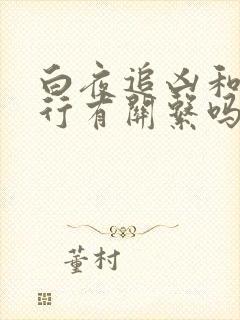 白夜追凶和
行有關繫吗
董村